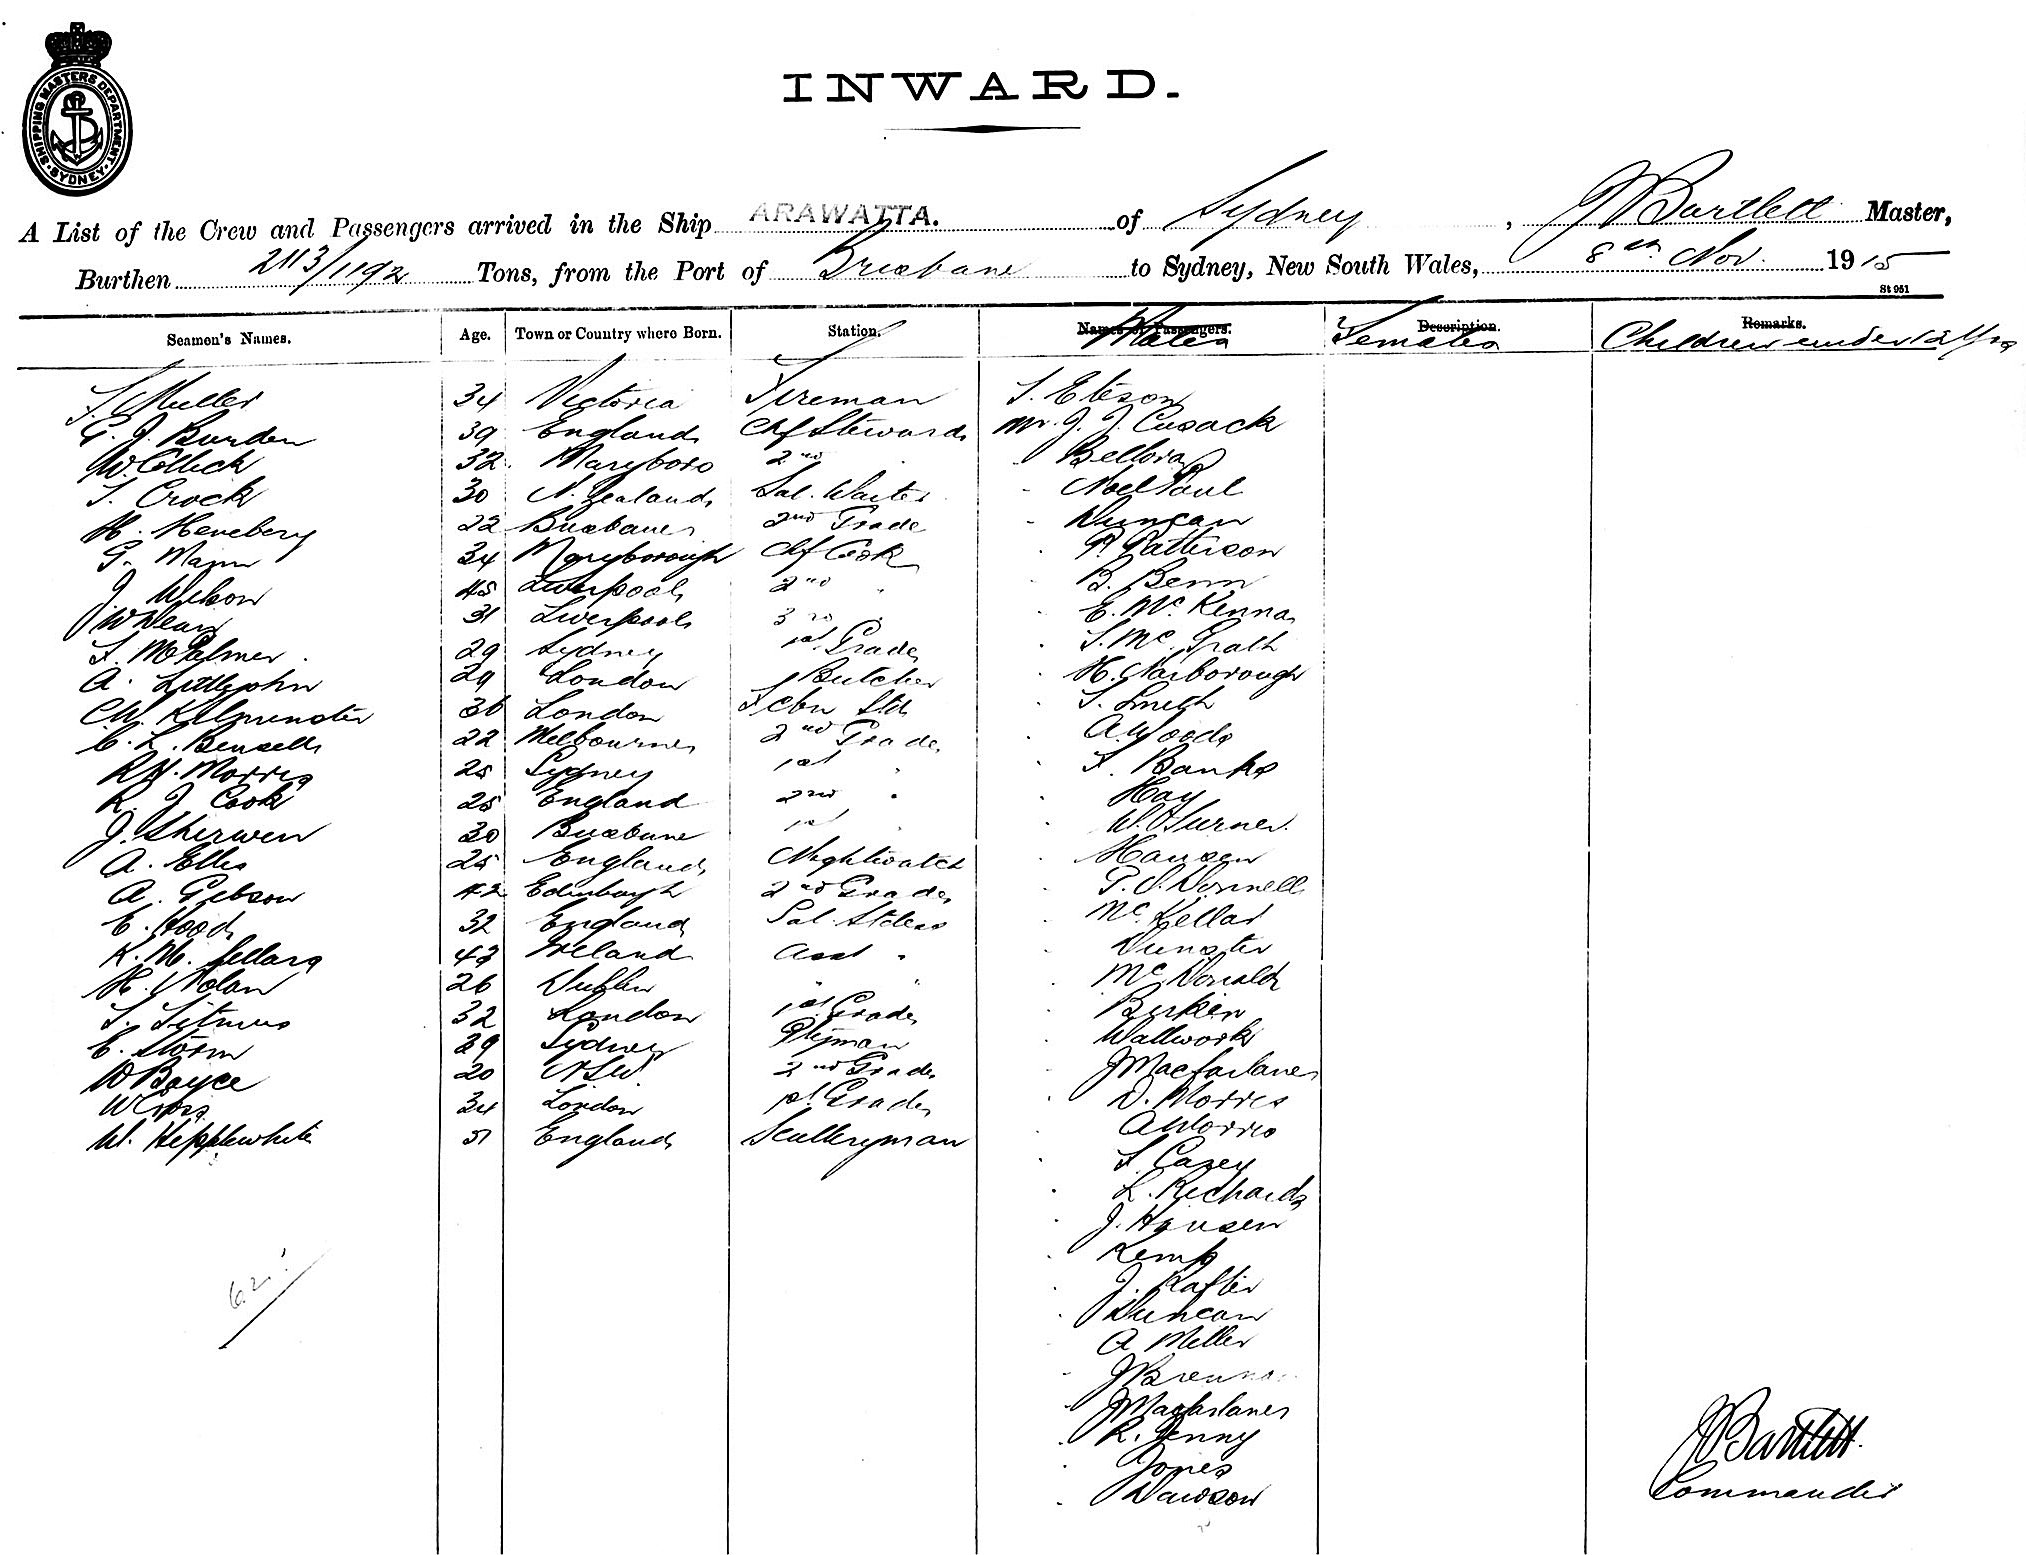 SHIPPING MASTERS DEPARTMENT
SYDNEY
INWARD.
A List of the Crew and Passengers arrived in the Ship ARAWATTA. of Sydney, J Bartlett Master,
Burthen 2113/1192 Tons, from the Port of Brisbane to Sydney, New South Wales, 8th Nov. 1915
St 951
Seamen's Names. Age. Town or Country where Born. Station. Names of Passengers. Males Description. Females Remarks. Children under 12 Yrs
Muller 34 Victoria Fireman Eteson
G. J. Burden 39 England Chf Steward Mr. J. J. Cusack
W Collick 32 Maryboro 2nd " Bellora
Crock 30 N. Zealand Sal. Waiter - Noel Paul
H. Henebery 22 Brisbane 2nd Grade - Duncan
G. Mann 34 Maryborough Chf Cook P. Patterson
J. Wilson 45 Liverpool 2nd " B. Benn
31 Liverpool 3rd " E. McKenna
Palmer 29 Sydney 1st Grade McGrath
A. Littlejohn 29 London Butcher H. Narborough
Kilminster 36 London Std. Smith
C. L. Bensell 22 Melbourne 2nd Grade A. Woods
R H. Morris 25 Sydney 1st " Banks
R. J. Cook 25 England 2nd " Hay
J. Sherwen 30 Brisbane 1st " W. Turner.
A. Ellis 25 England Nightwatch Hansen
A. Gibson 42 Edinburgh 2nd Grade O. Donnell
E. Hood 32 England Sal. Stdess McKellar
K. M. Sellars 43 Ireland Asst " Dunster
H. Nolan 26 Dublin " " McDonald
Titmus 32 London 1st Grade Birken
E. Storm 39 Sydney Ptyman Wallwork
W Boyce 20 N.S.W. 2nd Grade J Macfarlane
34 London 1st Grade D. Morris
W. Hepplewhite 51 England Sculleryman A Morris
Casey
L. Richards
J. Hansen
Kemp
J. Rafter
Duncan
A Miller
J Brennan
J Macfarlane
R. Jenny
Jones
Dawson
62
J Bartlett.
Commander